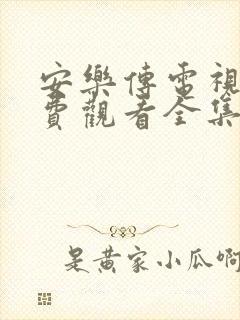 安樂傳電視
費觀看全集
是黃家小瓜啊